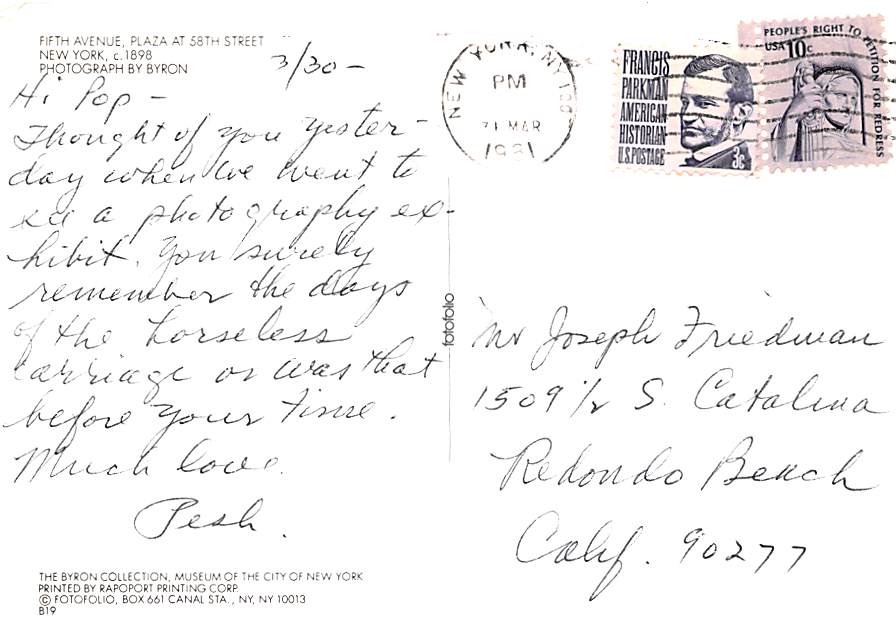 FIFTH AVENUE, PLAZA AT 58TH STREET
NEW YORK, c.1898
PHOTOGRAPH BY BYRON
3/30 -
Hi Pop -
Thought of you yester-
day when we went to
see a photography ex-
hibit. You surely
remember the days
of the horseless
carriage or was that
before your time.
Much love.
Pesh.
THE BYRON COLLECTION, MUSEUM OF THE CITY OF NEW YORK
PRINTED BY RAPOPORT PRINTING CORP.
© FOTOFOLIO, BOX 661 CANAL STA., NY, NY 10013
B19
fotofolio
NEW YORK, NY 100
PM
31 MAR
1981
FRANCIS
PARKMAN
AMERICAN
HISTORIAN
U.S. POSTAGE
3c
PEOPLE'S RIGHT TO PETITION FOR REDRESS
USA 10c
Mr Joseph Friedman
1509 1/2 S. Catalina
Redondo Beach
Calif. 90277